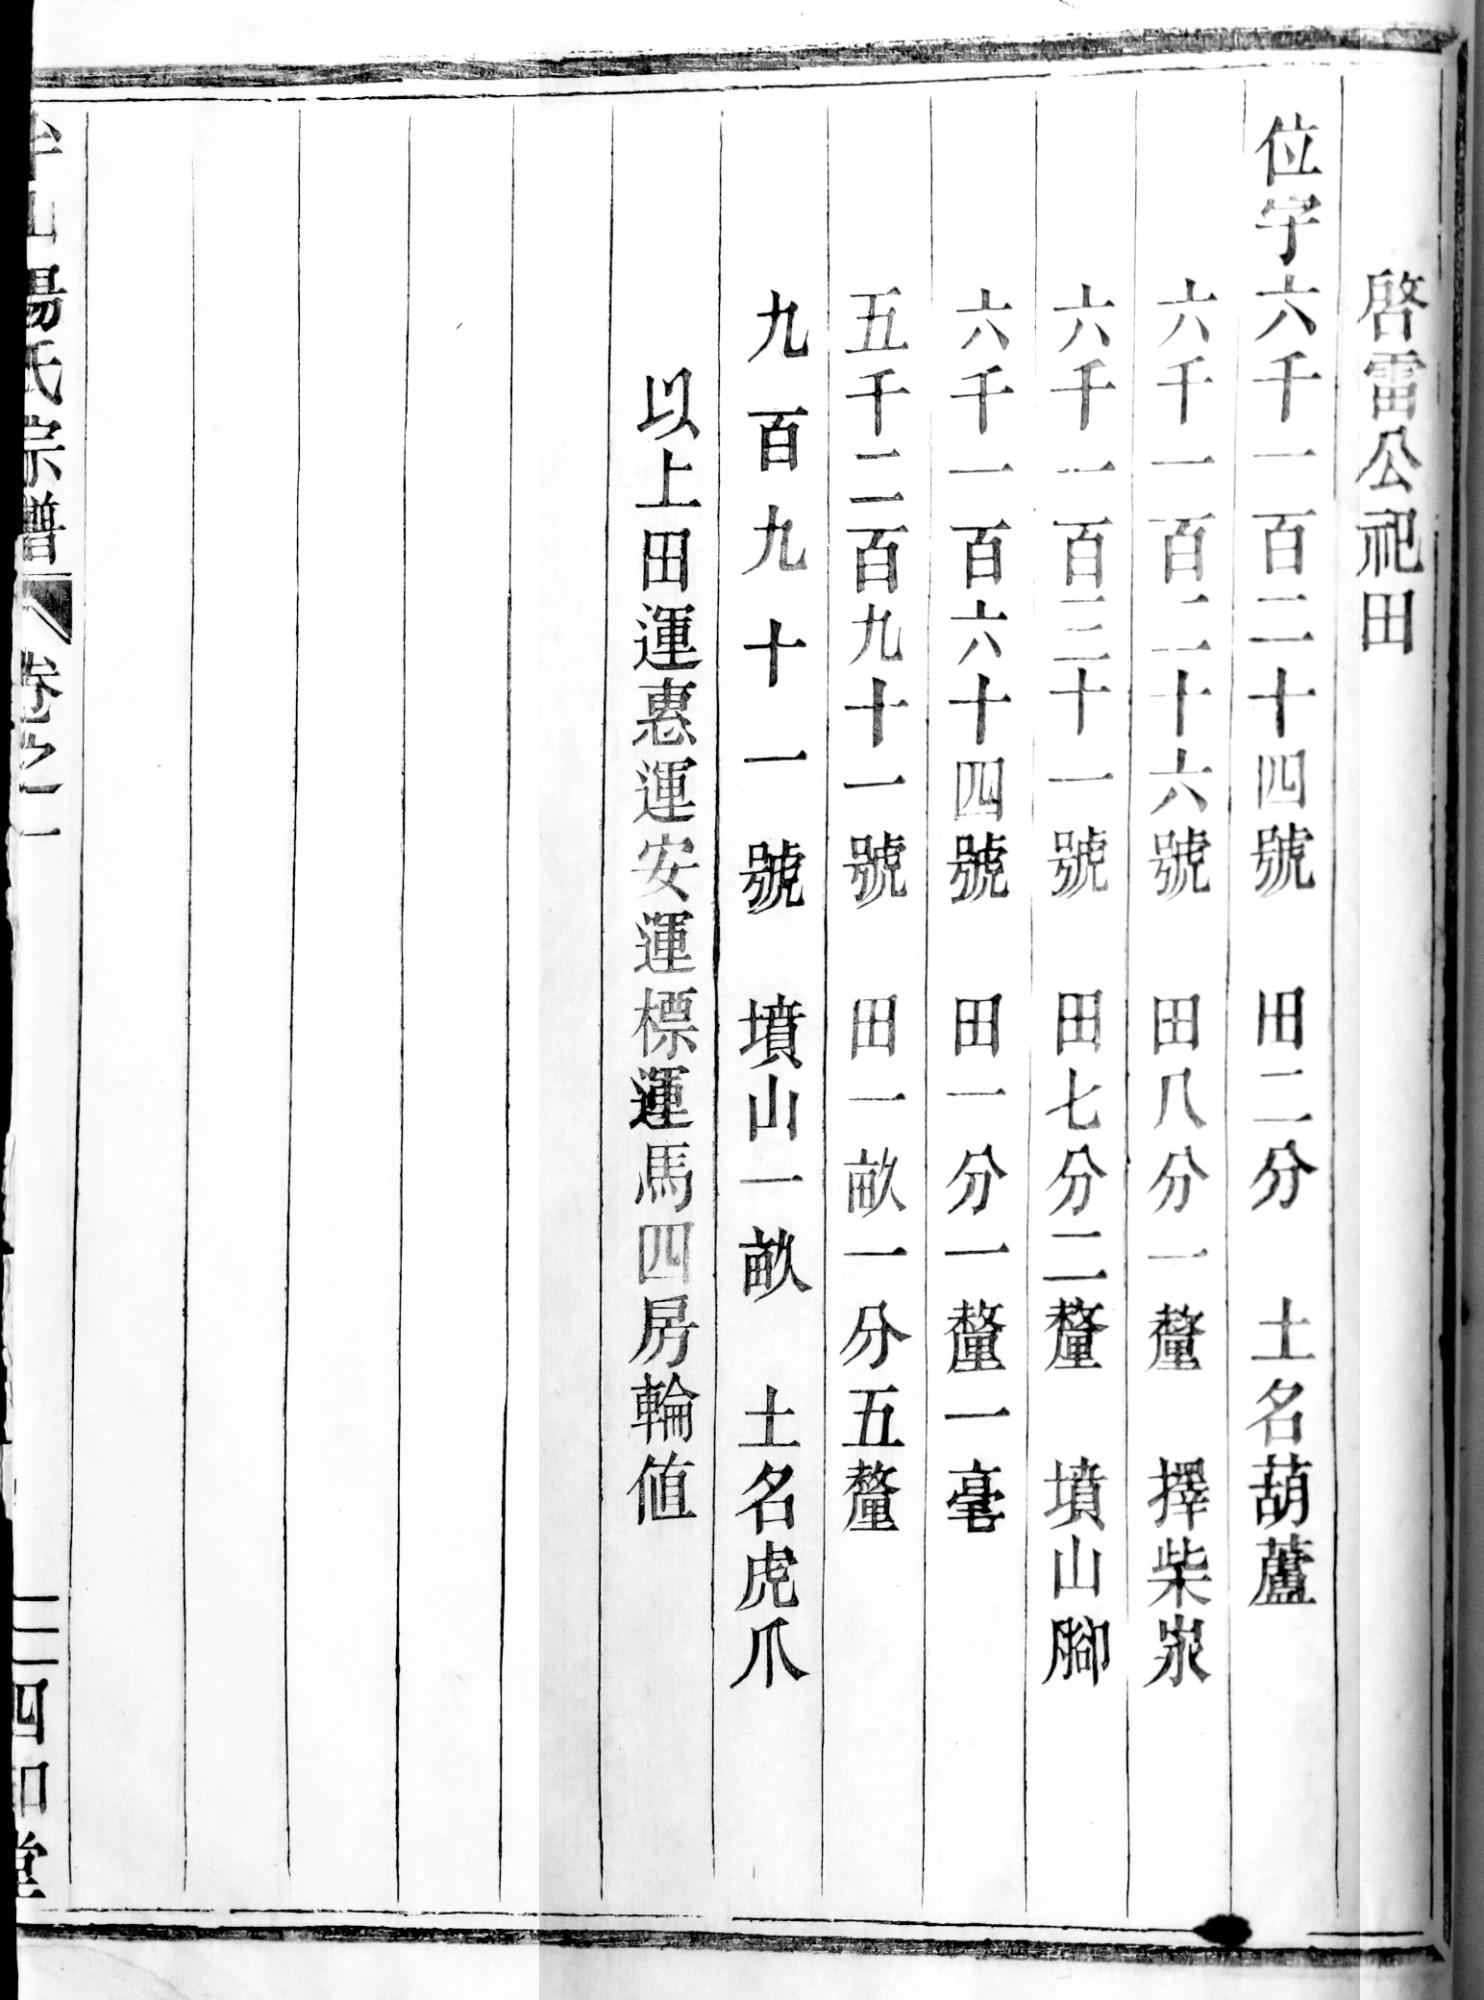 啓雷公祀田
位字六千一百二十四號　田二分　土名葫蘆
六千一百二十六號　田八分一釐　擇柴泉
六千一百三十一號　田七分二釐　墳山腳
六千一百六十四號　田一分一釐一毫
五千二百九十一號　田一畝一分五釐
九百九十一號　墳山一畝　土名虎爪
以上田運惠運安運標運馬四房輪值
山楊氏宗譜　卷之一　二　四和堂